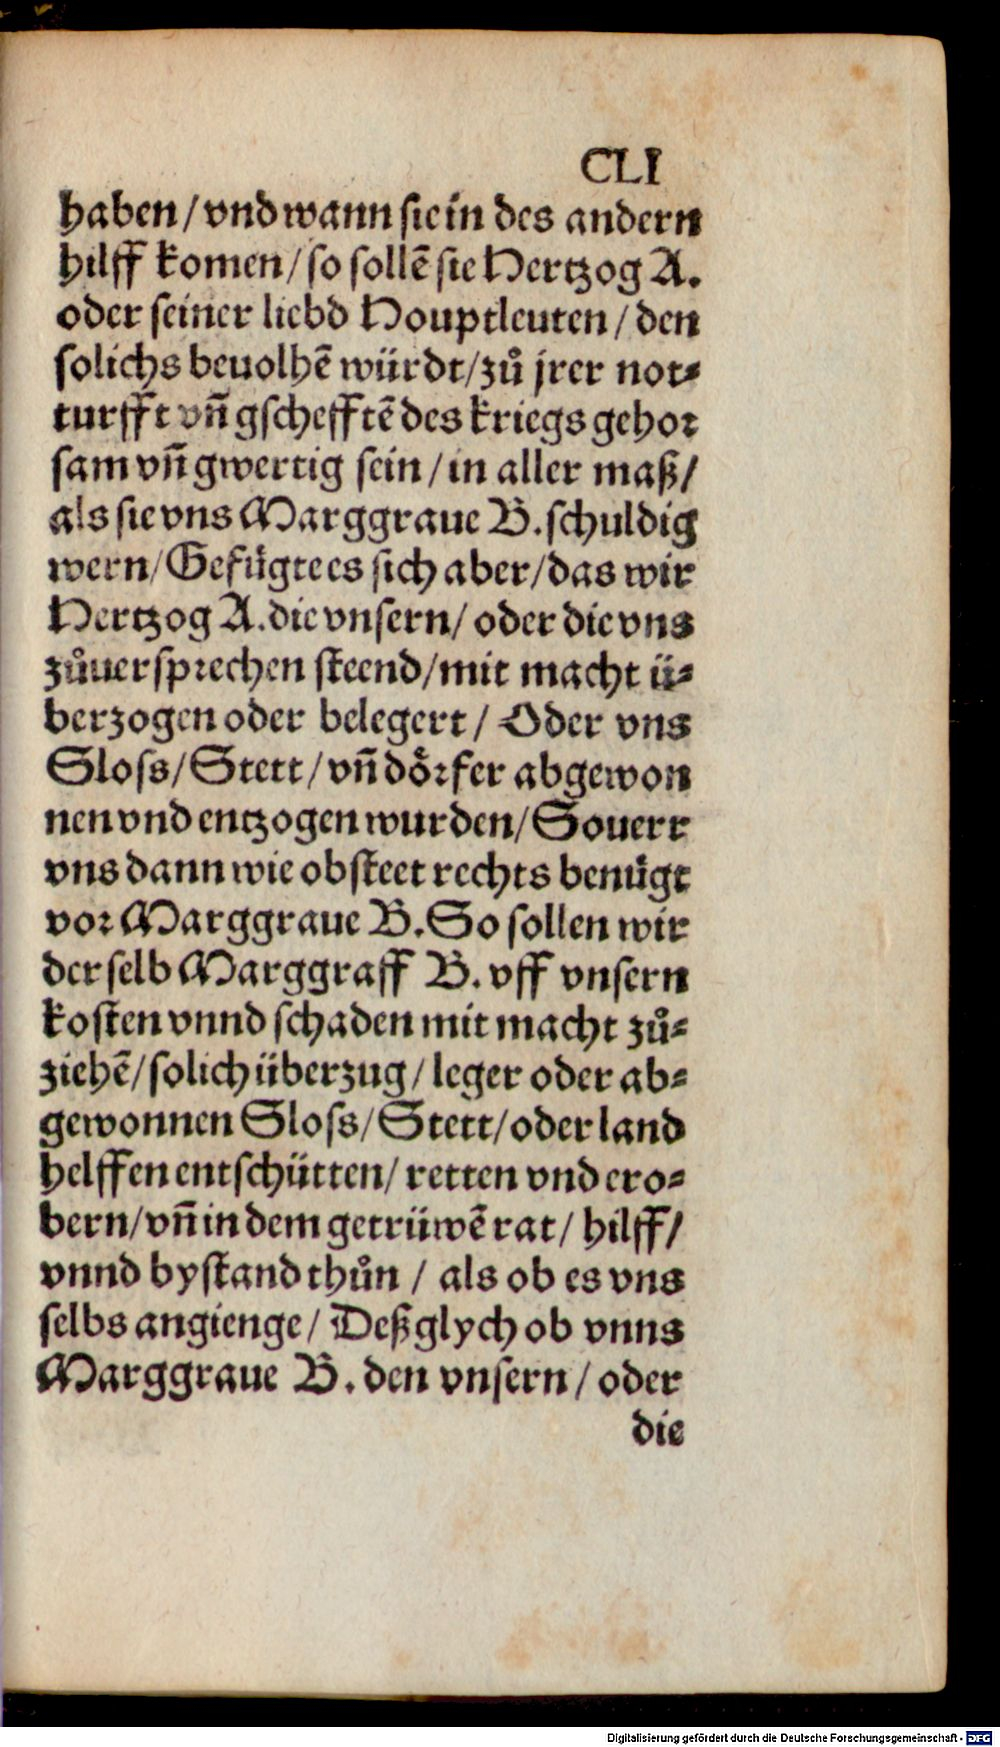 CLI
haben/ vnd wann sie in des andern
hilff komen/ so sollē sie Hertzog A.
oder seiner liebd Houptleuten/ den
solichs beuolhē würdt/ zů jrer not-
turfft vñ gschefftē des kriegs gehor
sam vñ gwertig sein/ in aller maß/
als sie vns Marggraue B. schuldig
wern/ Gefügte es sich aber/ das wir
Hertzog A. die vnsern/ oder die vns
zůuersprechen steend/ mit macht ü-
berzogen oder belegert/ Oder vns
Sloss/ Stett/ vñ dörfer abgewon
nen vnd entzogen wurden/ Souerr
vns dann wie obsteet rechts benügt
vor Marggraue B. So sollen wir
der selb Marggraff B. vff vnsern
kosten vnnd schaden mit macht zů-
ziehē/ solich überzug/ leger oder ab-
gewonnen Sloss/ Stett/ oder land
helffen entschütten/ retten vnd ero-
bern/ vñ in dem getrüwē rat/ hilff/
vnnd bystand thůn/ als ob es vns
selbs angienge/ Deßglych ob vnns
Marggraue B. den vnsern/ oder
die
Digitalisierung gefördert durch die Deutsche Forschungsgemeinschaft - DFG